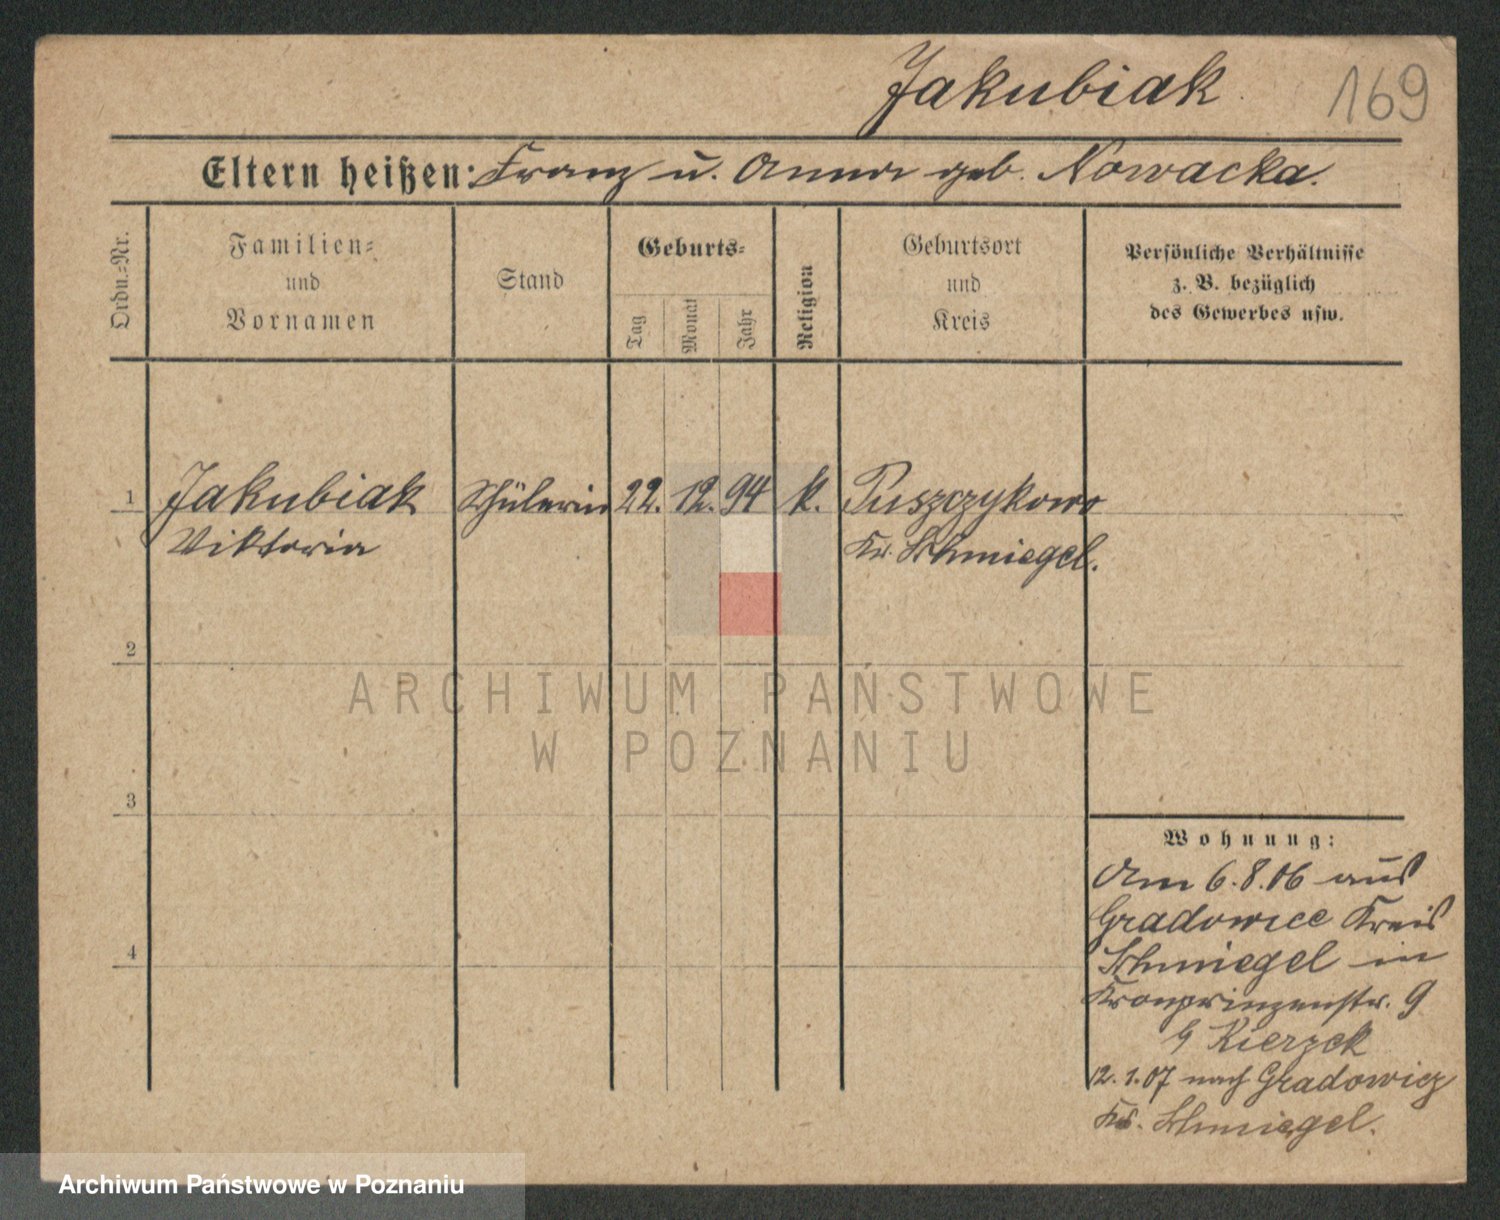 Jakubiak 169
Eltern heißen: Franz u. Anna geb. Nowacka.
Ordn.=Nr.
Familien=
und
Vornamen
Stand
Geburts=
Tag
Monat
Jahr
Religion
Geburtsort
und
Kreis
Persönliche Verhältnisse
z. B. bezüglich
des Gewerbes usw.
1 Jakubiak Schülerin 22. 12. 94 k. Puszczykowo
Viktoria Kr. Schmiegel.
2
3
4
Wohnung:
Am 6.8.06 aus
Gradowice Kreis
Schmiegel in
Kronprinzenstr. 9
b Kierzek
12.1.07 nach Gradowicz
Kr. Schmiegel.
ARCHIWUM PAŃSTWOWE
W POZNANIU
Archiwum Państwowe w Poznaniu